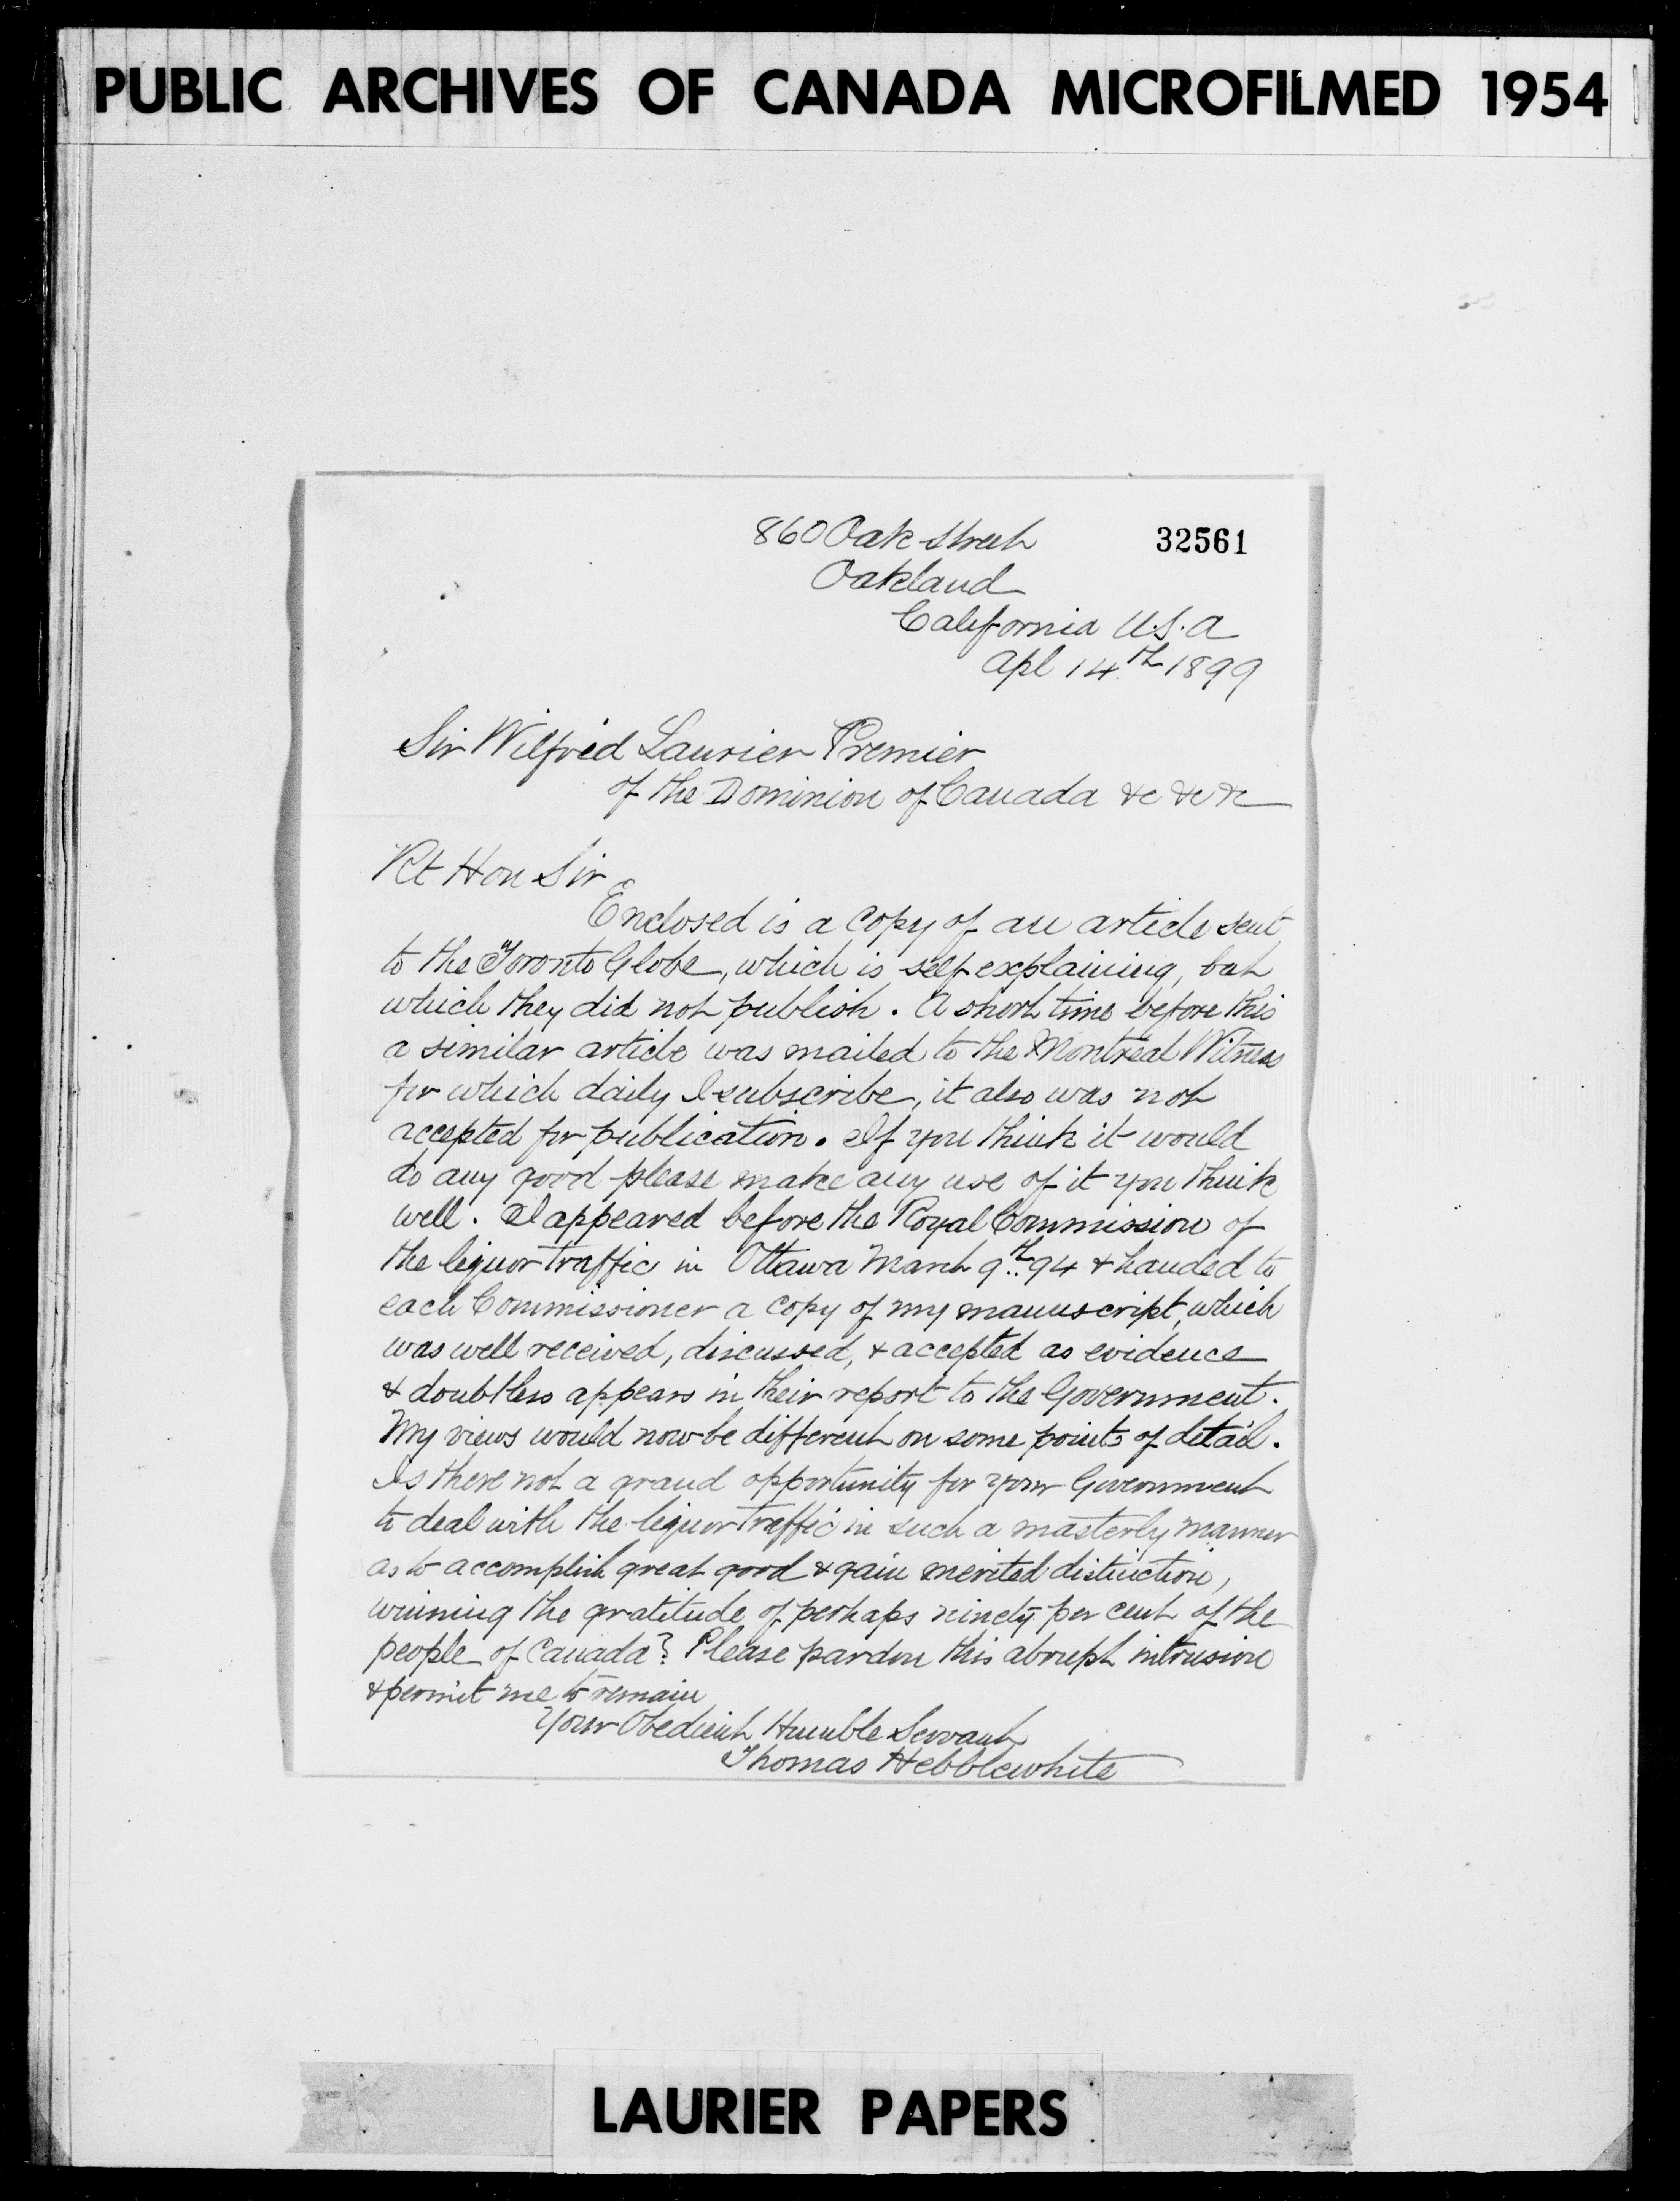 PUBLIC ARCHIVES OF CANADA MICROFILMED 1954
860 Oak Street 32561
Oakland
California U.S.A
Apl 14th 1899
Sir Wilfred Laurier Premier
of the Dominion of Canada &c &c &c
Rt Hon Sir
Enclosed is a copy of an article sent
to the "Toronto Globe, which is self explaining, but
which they did not publish. A short time before this
a similar article was mailed to the Montreal Witness
for which daily I subscribe, it also was not
accepted for publication. If you think it would
do any good please make any use of it you think
well. I appeared before the Royal Commission of
the liquor traffic in Ottawa March 9th 94 & handed to
each Commissioner a copy of my manuscript, which
was well received, discussed, & accepted as evidence
& doubtless appears in their report to the Government.
My views would now be different on some points of detail.
Is there not a grand opportunity for your Government
to deal with the liquor traffic in such a masterly manner
as to accomplish great good & gain merited distinction,
winning the gratitude of perhaps ninety per cent of the
people of Canada? Please pardon this abrupt intrusion
& permit me to remain
Your Obedient Humble Servant
Thomas Hebblewhite
LAURIER PAPERS